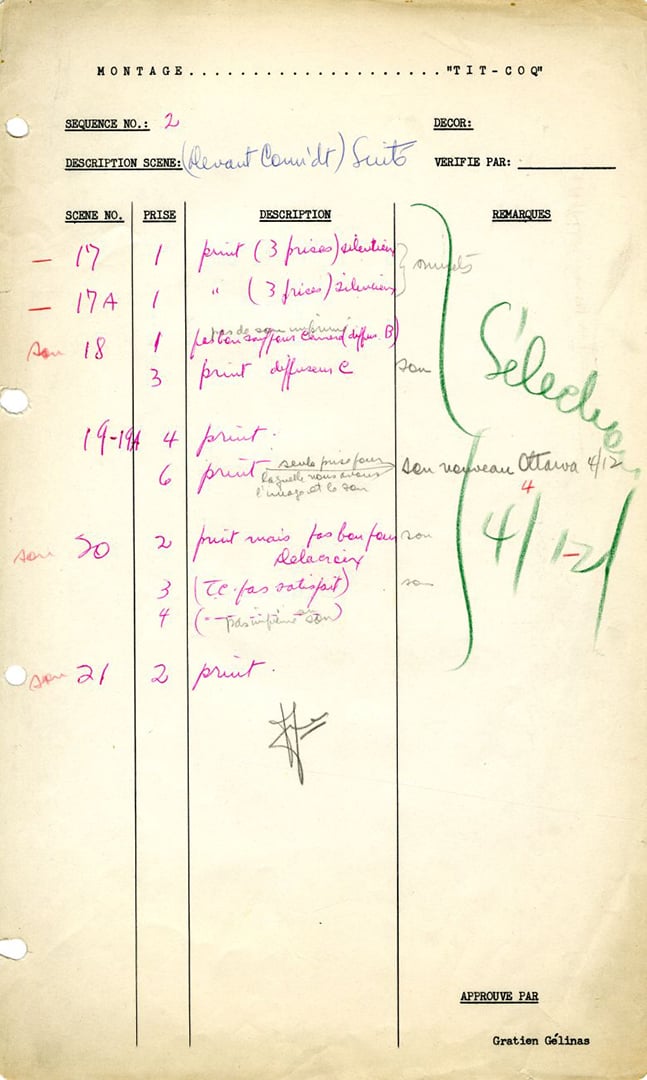 MONTAGE....................."TIT-COQ"
SEQUENCE NO.: 2 DECOR:
DESCRIPTION SCENE: (Devant Comidt) Suite VERIFIE PAR:
SCENE NO. PRISE DESCRIPTION REMARQUES
— 17 1 print (3 prises)
— 17A 1 " (3 prises)
omités
pas de son imprimé
son 18 1 pas bon son pour (diffus. B)
3 print diffuseur C son
Sélection
19-19A 4 print.
6 print seule prise pour laquelle nous avons l'image et le son son nouveau Ottawa 4/12
4
4/12/
son 20 2 print mais pas bon pour son
Delacroix
3 (T.C. pas satisfait) son
4 (" pas imprimé son)
son 21 2 print.
APPROUVE PAR
Gratien Gélinas